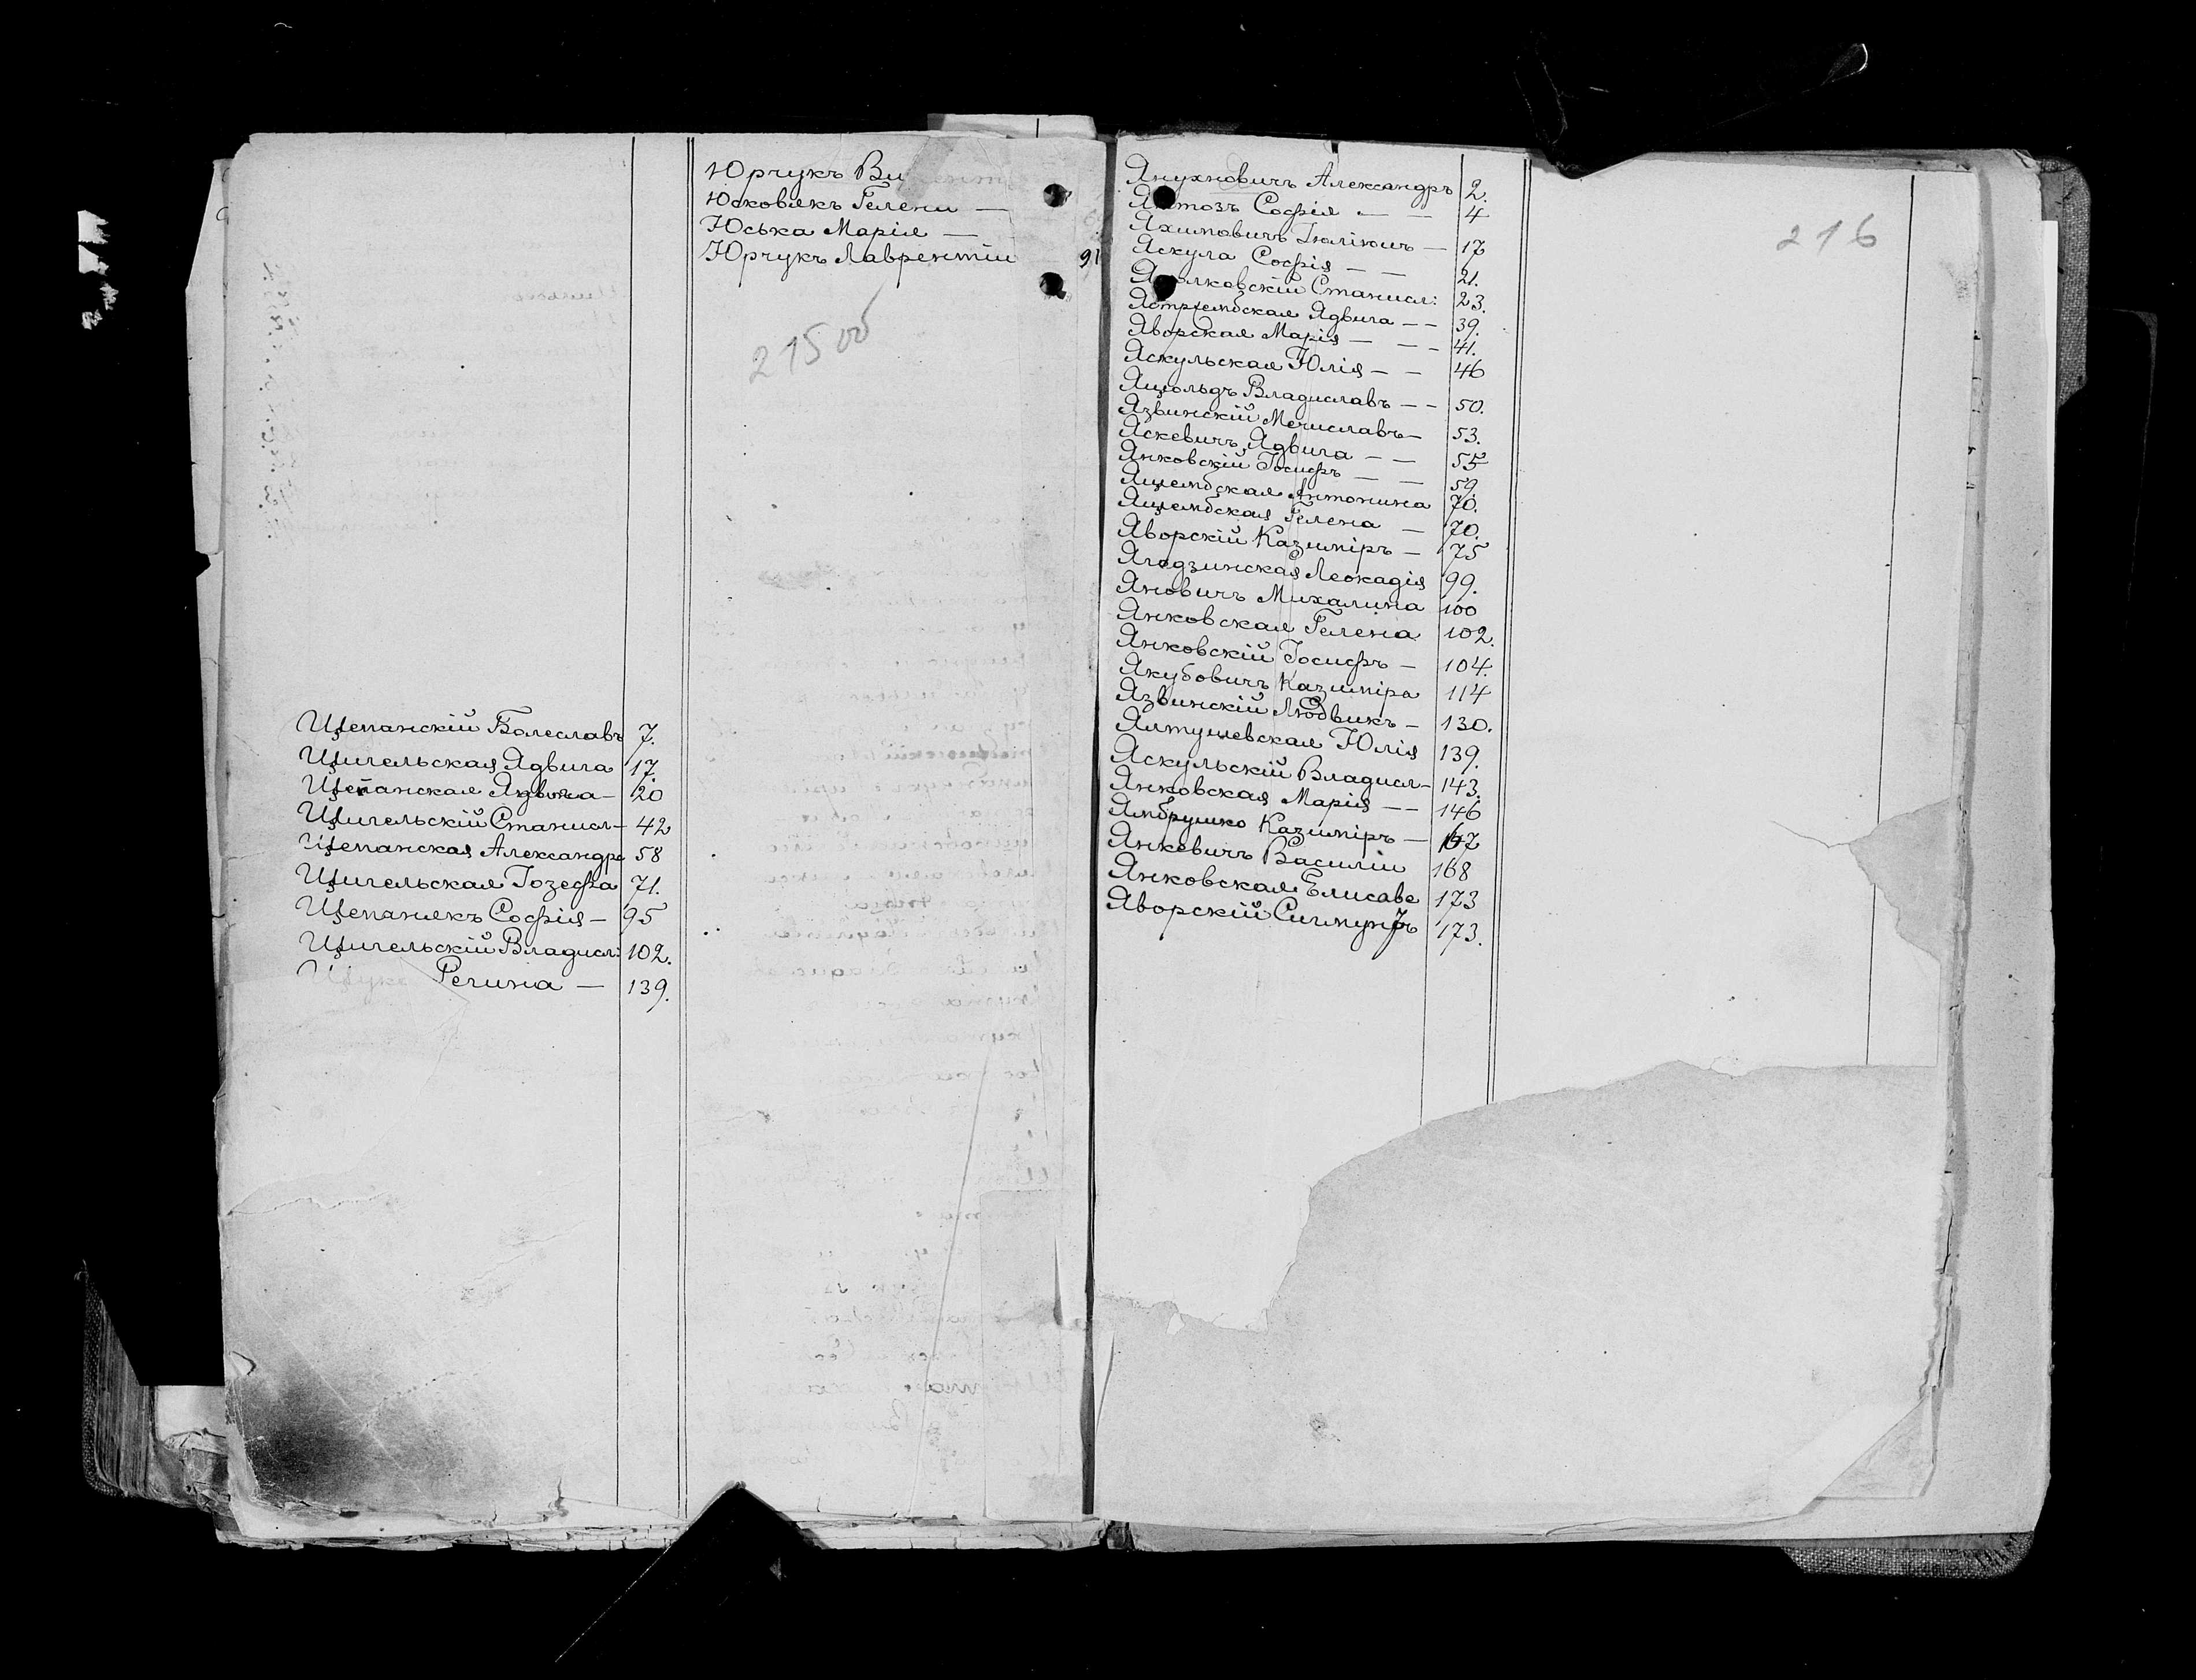 Щепанскій Болеславъ 7.
Щигельская Ядвига 17.
Щепанская Ядвига — 20
Щигельскій Станисл — 42
Щепанская Александра 58
Щигельская Іозефа 71.
Щепанякъ Софія — 95
Щигельскій Владисл: 102.
Щука Регина — 139.
Юрчукъ
Юсковякъ Гелена —
Юська Марія —
Юрчукъ Лаврентій 91
215 об
216
Янухновичъ Александръ 2.
Софія — — 4
Яхимовичъ Іюліюшъ — 17
Яскула Софія — — 21.
Станисл: 23.
Ястржембская Ядвига — — 39.
Яворская Марія — — — 41.
Яскульская Юлія — — 46
Яцольдъ Владиславъ — — 50.
Язвинскій Мечиславъ — 53.
Яскевичъ Ядвига — — 55
Янковскій Іосифъ — — 59.
Яцембская Антонина 70.
Яцембская Гелена — 70.
Яворскій Казиміръ — 75
Ягодзинская Леокадія 99.
Яновичъ Михалина 100
Янковская Гелена 102.
Янковскій Іосифъ — 104.
Якубовичъ Казиміра 114
Язвинскій Людвикъ — 130.
Ялтушевская Юлія 139.
Яскульскій Владисл — 143.
Янковская Марія — — 146
Ямбрушко Казиміръ — 167
Янкевичъ Василій 168
Янковская Елисаве 173
Яворскій Сигмундъ 173.